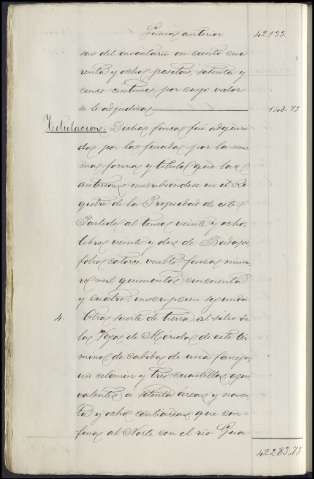 Suma anterior 42135
so del inventario en ciento cua
renta y ocho pesetas, setenta y
cinco centimos por cuyo valor
se le adjudica 148.75
Titulacion. Dichas fincas fue adquiri
das por los finados por la mis
ma forma y titulo que las
anteriores inscribiendose en el Re
gistro de la Propiedad de este
Partido al tomo veinte y ocho
libro veinte y dos de Badajoz
folio catorce vuelto finca nume
ro mil quinientos cincuenta
y cuatro, inscripcion segunda
4 Otra suerte de tierra al sitio de
las Vegas de Mendez de este ter
mino de cabida de una fanega
un celemin y tres cuartillos, equi
valentes a setenta areas y noven
ta y ocho centiareas, que con
fina al Norte con el rio Gua
42283.75